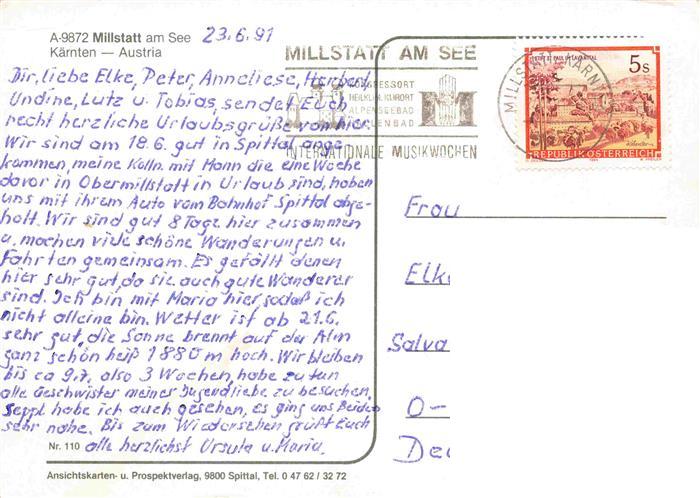 A-9872 Millstatt am See
Kärnten — Austria
23.6.91
Dir, liebe Elke, Peter, Anneliese, Herbert,
Undine, Lutz u. Tobias, sendet Euch
recht herzliche Urlaubsgrüße von hier.
Wir sind am 18.6. gut in Spittal ange-
kommen, meine Kolln. mit Mann die eine Woche
davor in Obermillstatt in Urlaub sind, haben
uns mit ihrem Auto vom Bahnhof Spittal abge-
holt. Wir sind gut 8 Tage hier zusammen
u. machen viele schöne Wanderungen u.
Fahrten gemeinsam. Es gefällt denen
hier sehr gut, da sie auch gute Wanderer
sind. Ich bin mit Maria hier, sodaß ich
nicht alleine bin. Wetter ist ab 21.6.
sehr gut, die Sonne brennt auf der Alm
ganz schön heiß 1880 m hoch. Wir bleiben
bis ca 9.7. also 3 Wochen, habe zu tun
alle Geschwister meiner Jugendliebe zu besuchen.
Seppl habe ich auch gesehen, es ging uns Beiden
sehr nahe. Bis zum Wiedersehen grüßt Euch
alle herzlichst Ursula u. Maria.
Nr. 110
Ansichtskarten- u. Prospektverlag, 9800 Spittal, Tel. 0 47 62 / 32 72
MILLSTATT AM SEE
KONGRESSORT
HEILKLIM. KURORT
ALPENSEEBAD
HALLENBAD
INTERNATIONALE MUSIKWOCHEN
MILLSTATT, KÄRNTEN
STIFT ST. PAUL IM LAVANTTAL
5 S
REPUBLIK ÖSTERREICH
Frau
Elk
Salva
O-
De